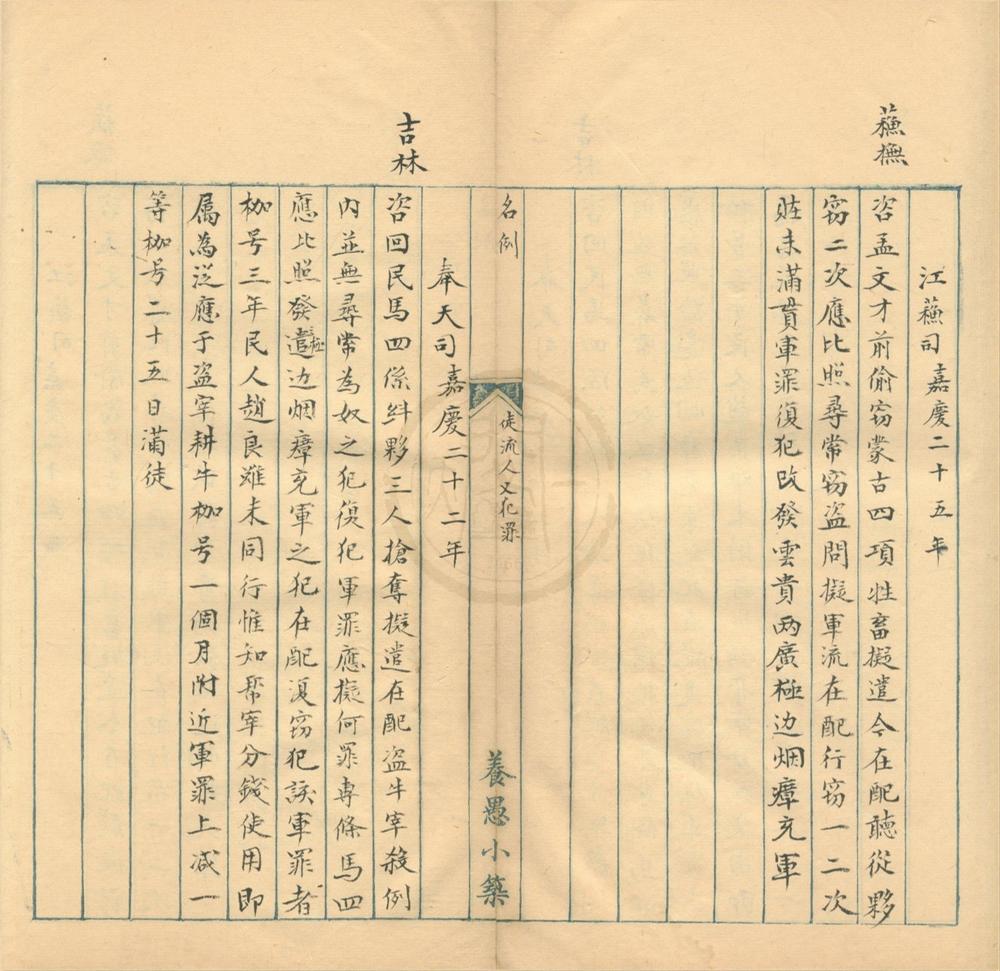 蘓撫
江蘓司嘉慶二十五年
咨孟文才前偷窃蒙古四項牲畜擬遣今在配聽從夥
窃二次應比照尋常窃盗問擬軍流在配行窃一二次
賍未滿貫軍罪復犯改發雲貴両廣極边烟瘴充軍
名例
徒流人又犯罪
養愚小築
吉林
奉天司嘉慶二十二年
咨回民馬四係糾夥三人搶奪擬遣在配盗牛宰殺例
内並無尋常為奴之犯復犯軍罪應擬何罪專條馬四
應比照發遣極边烟瘴充軍之犯在配復窃犯該軍罪者
枷号三年民人趙良雖未同行惟知帮宰分錢使用即
属為从應于盗宰耕牛枷号一個月附近軍罪上减一
等枷号二十五日滿徒